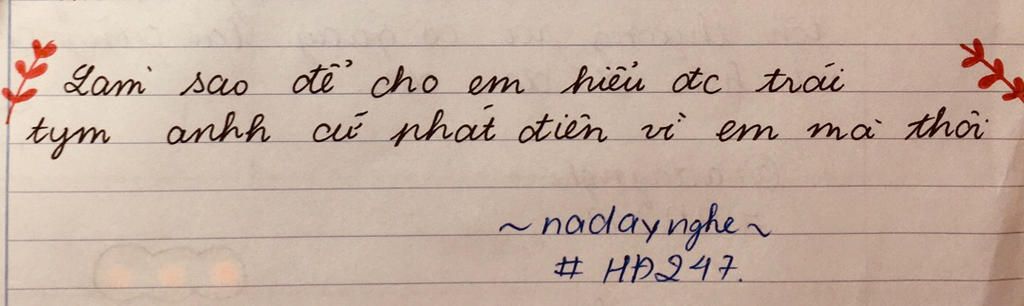 Làm sao để cho em hiểu đc trái
tym anhh cứ phát điên vì em mà thôi
~nadaynghe~
# HĐ247.